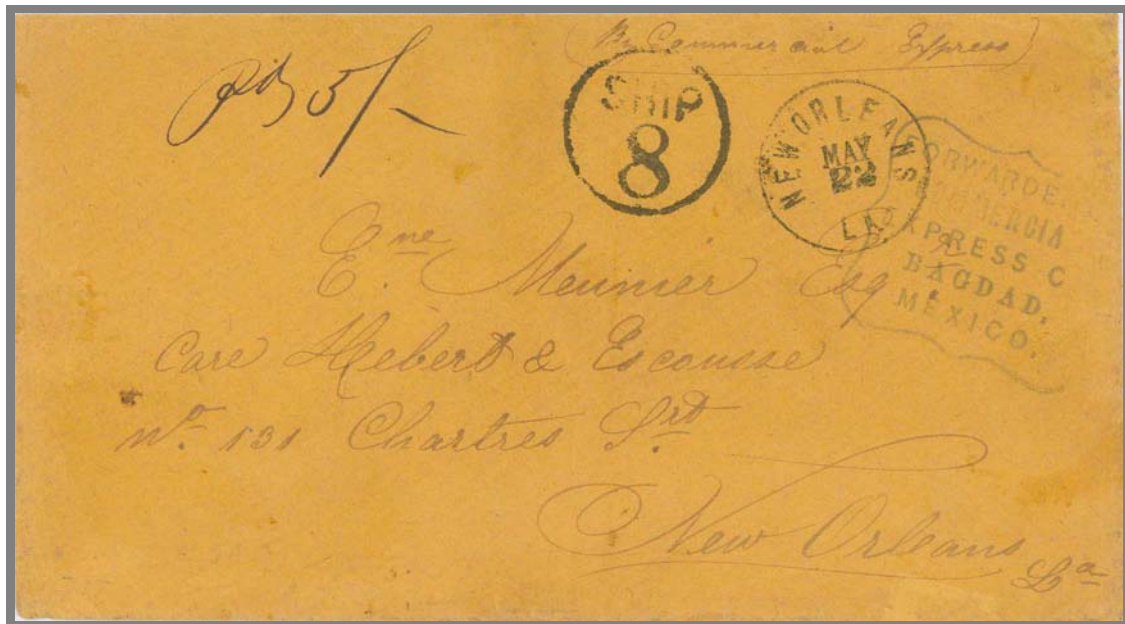 (By Commercial Express)
Pd 5/-
SHIP
8
NEW ORLEANS
MAY
22
LA
FORWARDE
OMMERCIA
EXPRESS C
BAGDAD,
MEXICO.
E.ne Meunier Esq
Care Hebert & Escousse
No 131 Chartres Srt
New Orleans
La